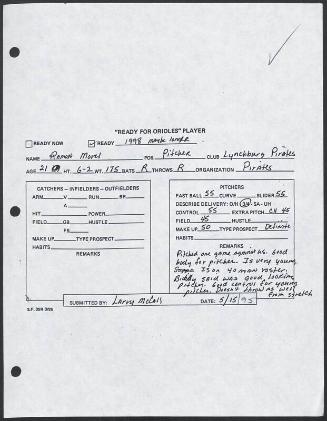 "READY FOR ORIOLES" PLAYER
READY NOW ✓ READY 1998
NAME Ramon Morel POS Pitcher CLUB Lynchburg Pirates
AGE 21 HT. 6-2 WT. 175 BATS R THROWS R ORGANIZATION Pirates
CATCHERS - INFIELDERS - OUTFIELDERS
ARM V. RUN BR.
A.
HIT POWER
FIELD GB HUSTLE
FB
MAKE UP TYPE PROSPECT
HABITS
REMARKS
PITCHERS
FAST BALL 55 CURVE SLIDER 55
DESCRIBE DELIVERY: O/H 3/4 SA - UH
CONTROL 55 EXTRA PITCH CH 45
FIELD 45 HUSTLE
MAKE UP 50 TYPE PROSPECT Definite
HABITS
REMARKS
Pitched one game against us. Good
body for pitcher. Is very young.
Is on 40 man roster.
said was good looking
pitcher. Good control for young
pitcher. Doesn't throw as well
from stretch
SUBMITTED BY: Larry McCall DATE: 5/15/95